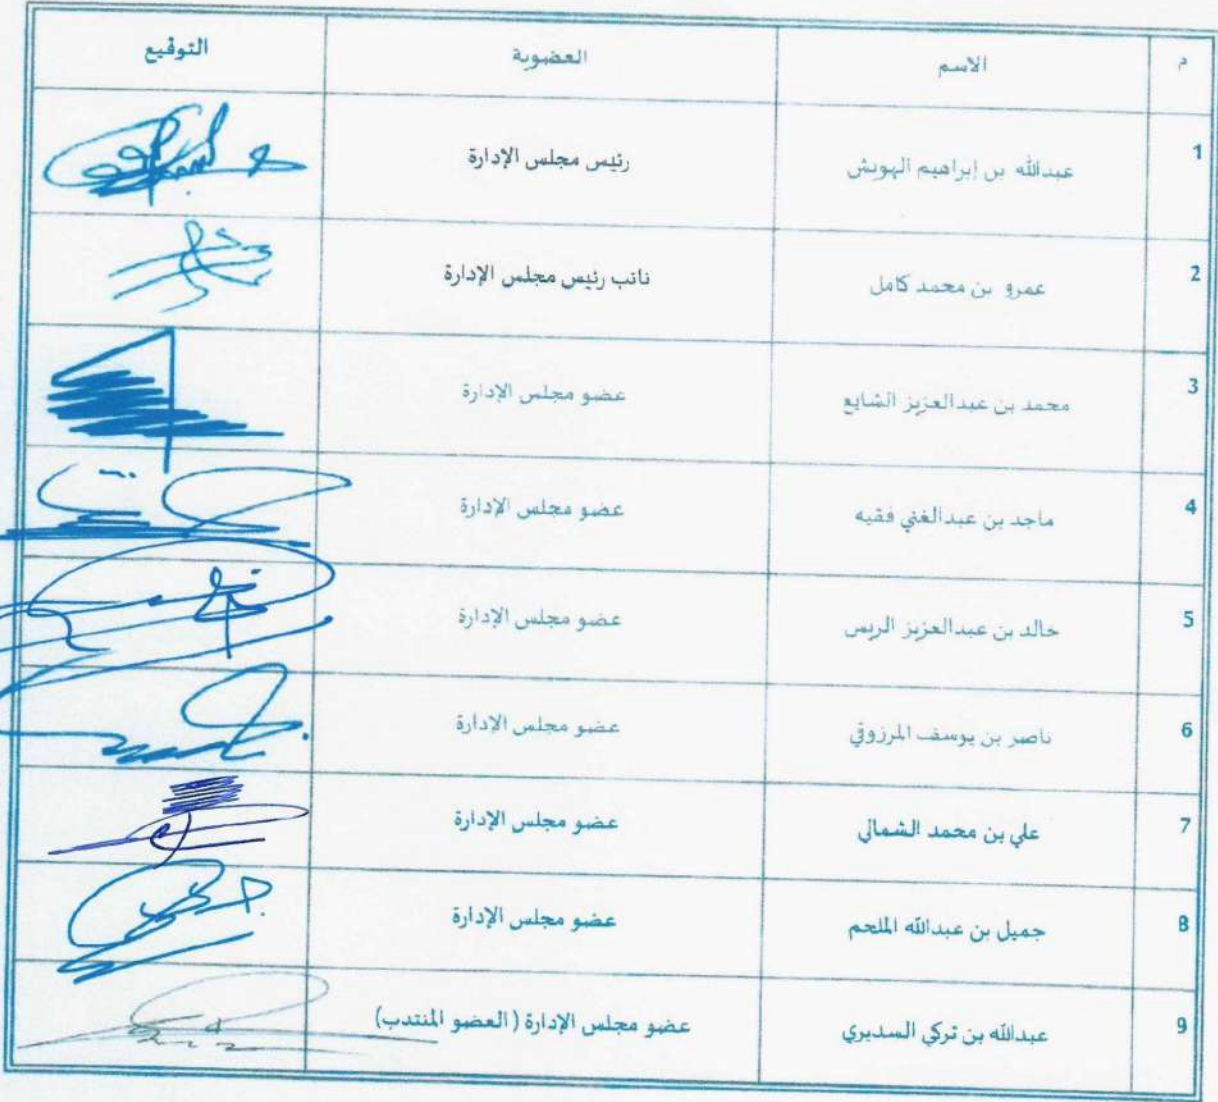 م الاسم العضوية التوقيع
1 عبدالله بن إبراهيم الهويش رئيس مجلس الإدارة
2 عمرو بن محمد كامل نائب رئيس مجلس الإدارة
3 محمد بن عبدالعزيز الشايع عضو مجلس الإدارة
4 ماجد بن عبدالغني فقيه عضو مجلس الإدارة
5 خالد بن عبدالعزيز الريس عضو مجلس الإدارة
6 ناصر بن يوسف المرزوقي عضو مجلس الإدارة
7 علي بن محمد الشمالي عضو مجلس الإدارة
8 جميل بن عبدالله الملحم عضو مجلس الإدارة
9 عبدالله بن تركي السديري عضو مجلس الإدارة (العضو المنتدب)